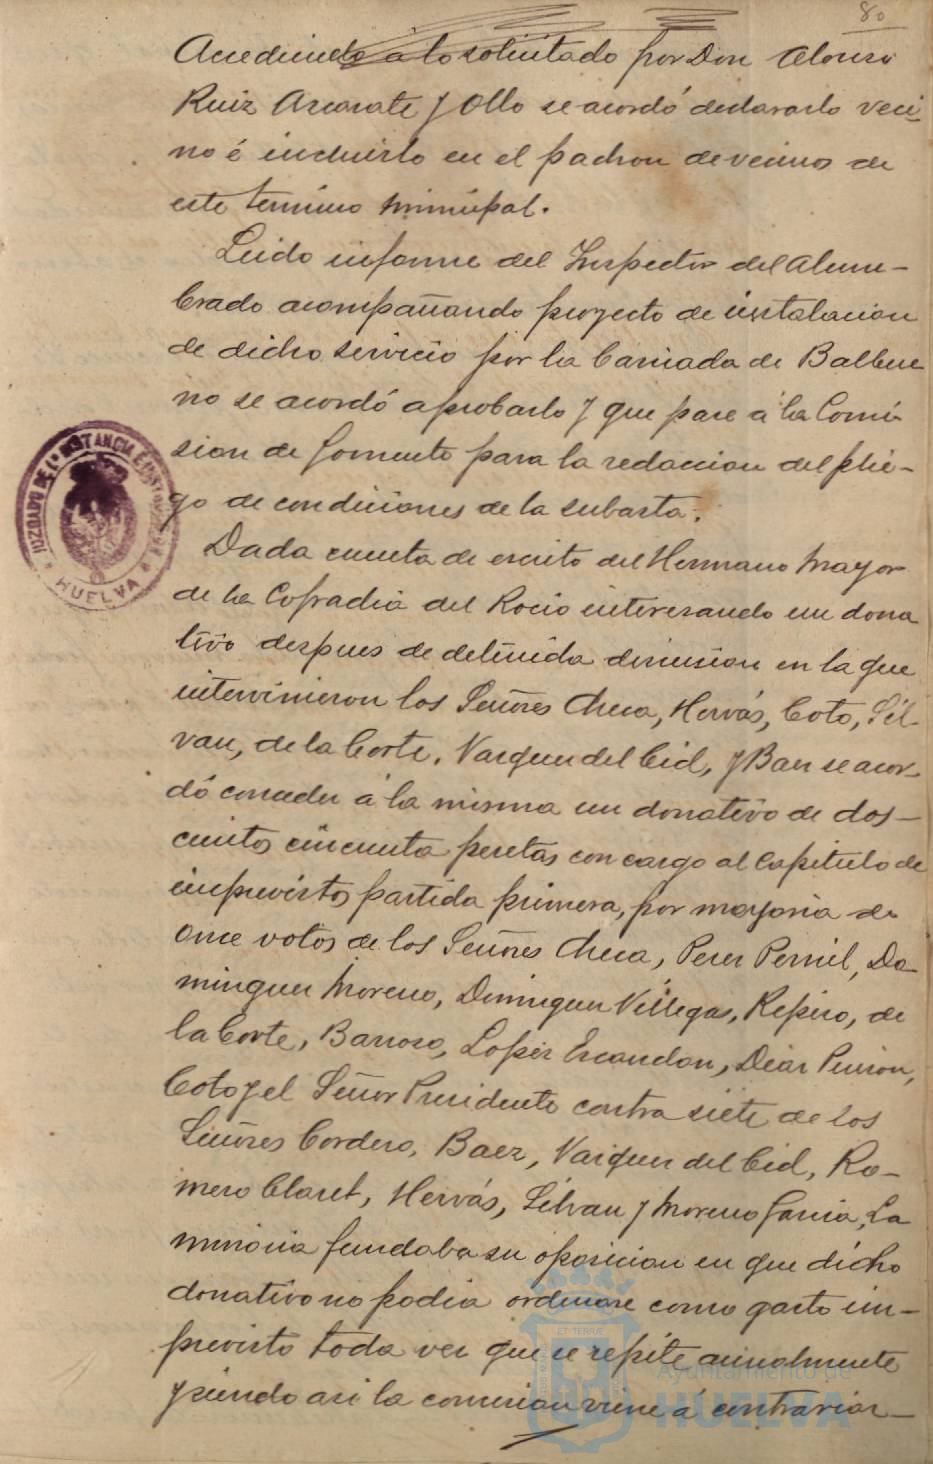 80
Accediendo á lo solicitado por Don Alonso
Ruiz Azcarate y Ollo se acordó declararlo veci-
no é incluirlo en el padron de vecinos de
este termino municipal.
Leido informe del Inspector del Alum-
brado acompañando proyecto de instalacion
de dicho servicio por la barriada de Balbue
no se acordó aprobarlo y que pase á la Comi
sion de Fomento para la redaccion del plie-
go de condiciones de la subasta.
Dada cuenta de escrito del Hermano Mayor
de la Cofradia del Rocio interesando un dona
tivo despues de detenida discusion en la que
intervinieron los Señores Checa, Hervás, Coto, Sil-
van, de la Corte, Vazquez del Cid, y Baez se acor-
dó conceder á la misma un donativo de dos-
cientas cincuenta pesetas con cargo al Capitulo de
imprevistos partida primera, por mayoria de
once votos de los Señores Checa, Perez Pernil, Do-
minguez Moreno, Dominguez Villegas, Repiso, de
la Corte, Barroso, Lopez Escandon, Diaz
Coto y el Señor Presidente contra siete de los
Señores Cordero, Baez, Vazquez del Cid, Ro-
mero Claret, Hervás, Silvan y Moreno Garcia, La
minoria fundaba su oposicion en que dicho
donativo no podia ordenarse como gasto im-
previsto toda vez que se repite anualmente
y siendo asi la comision viene á contrariar-
JUZGADO DE 1ª INSTANCIA É INSTRUCCION
HUELVA
Ayuntamiento de
HUELVA